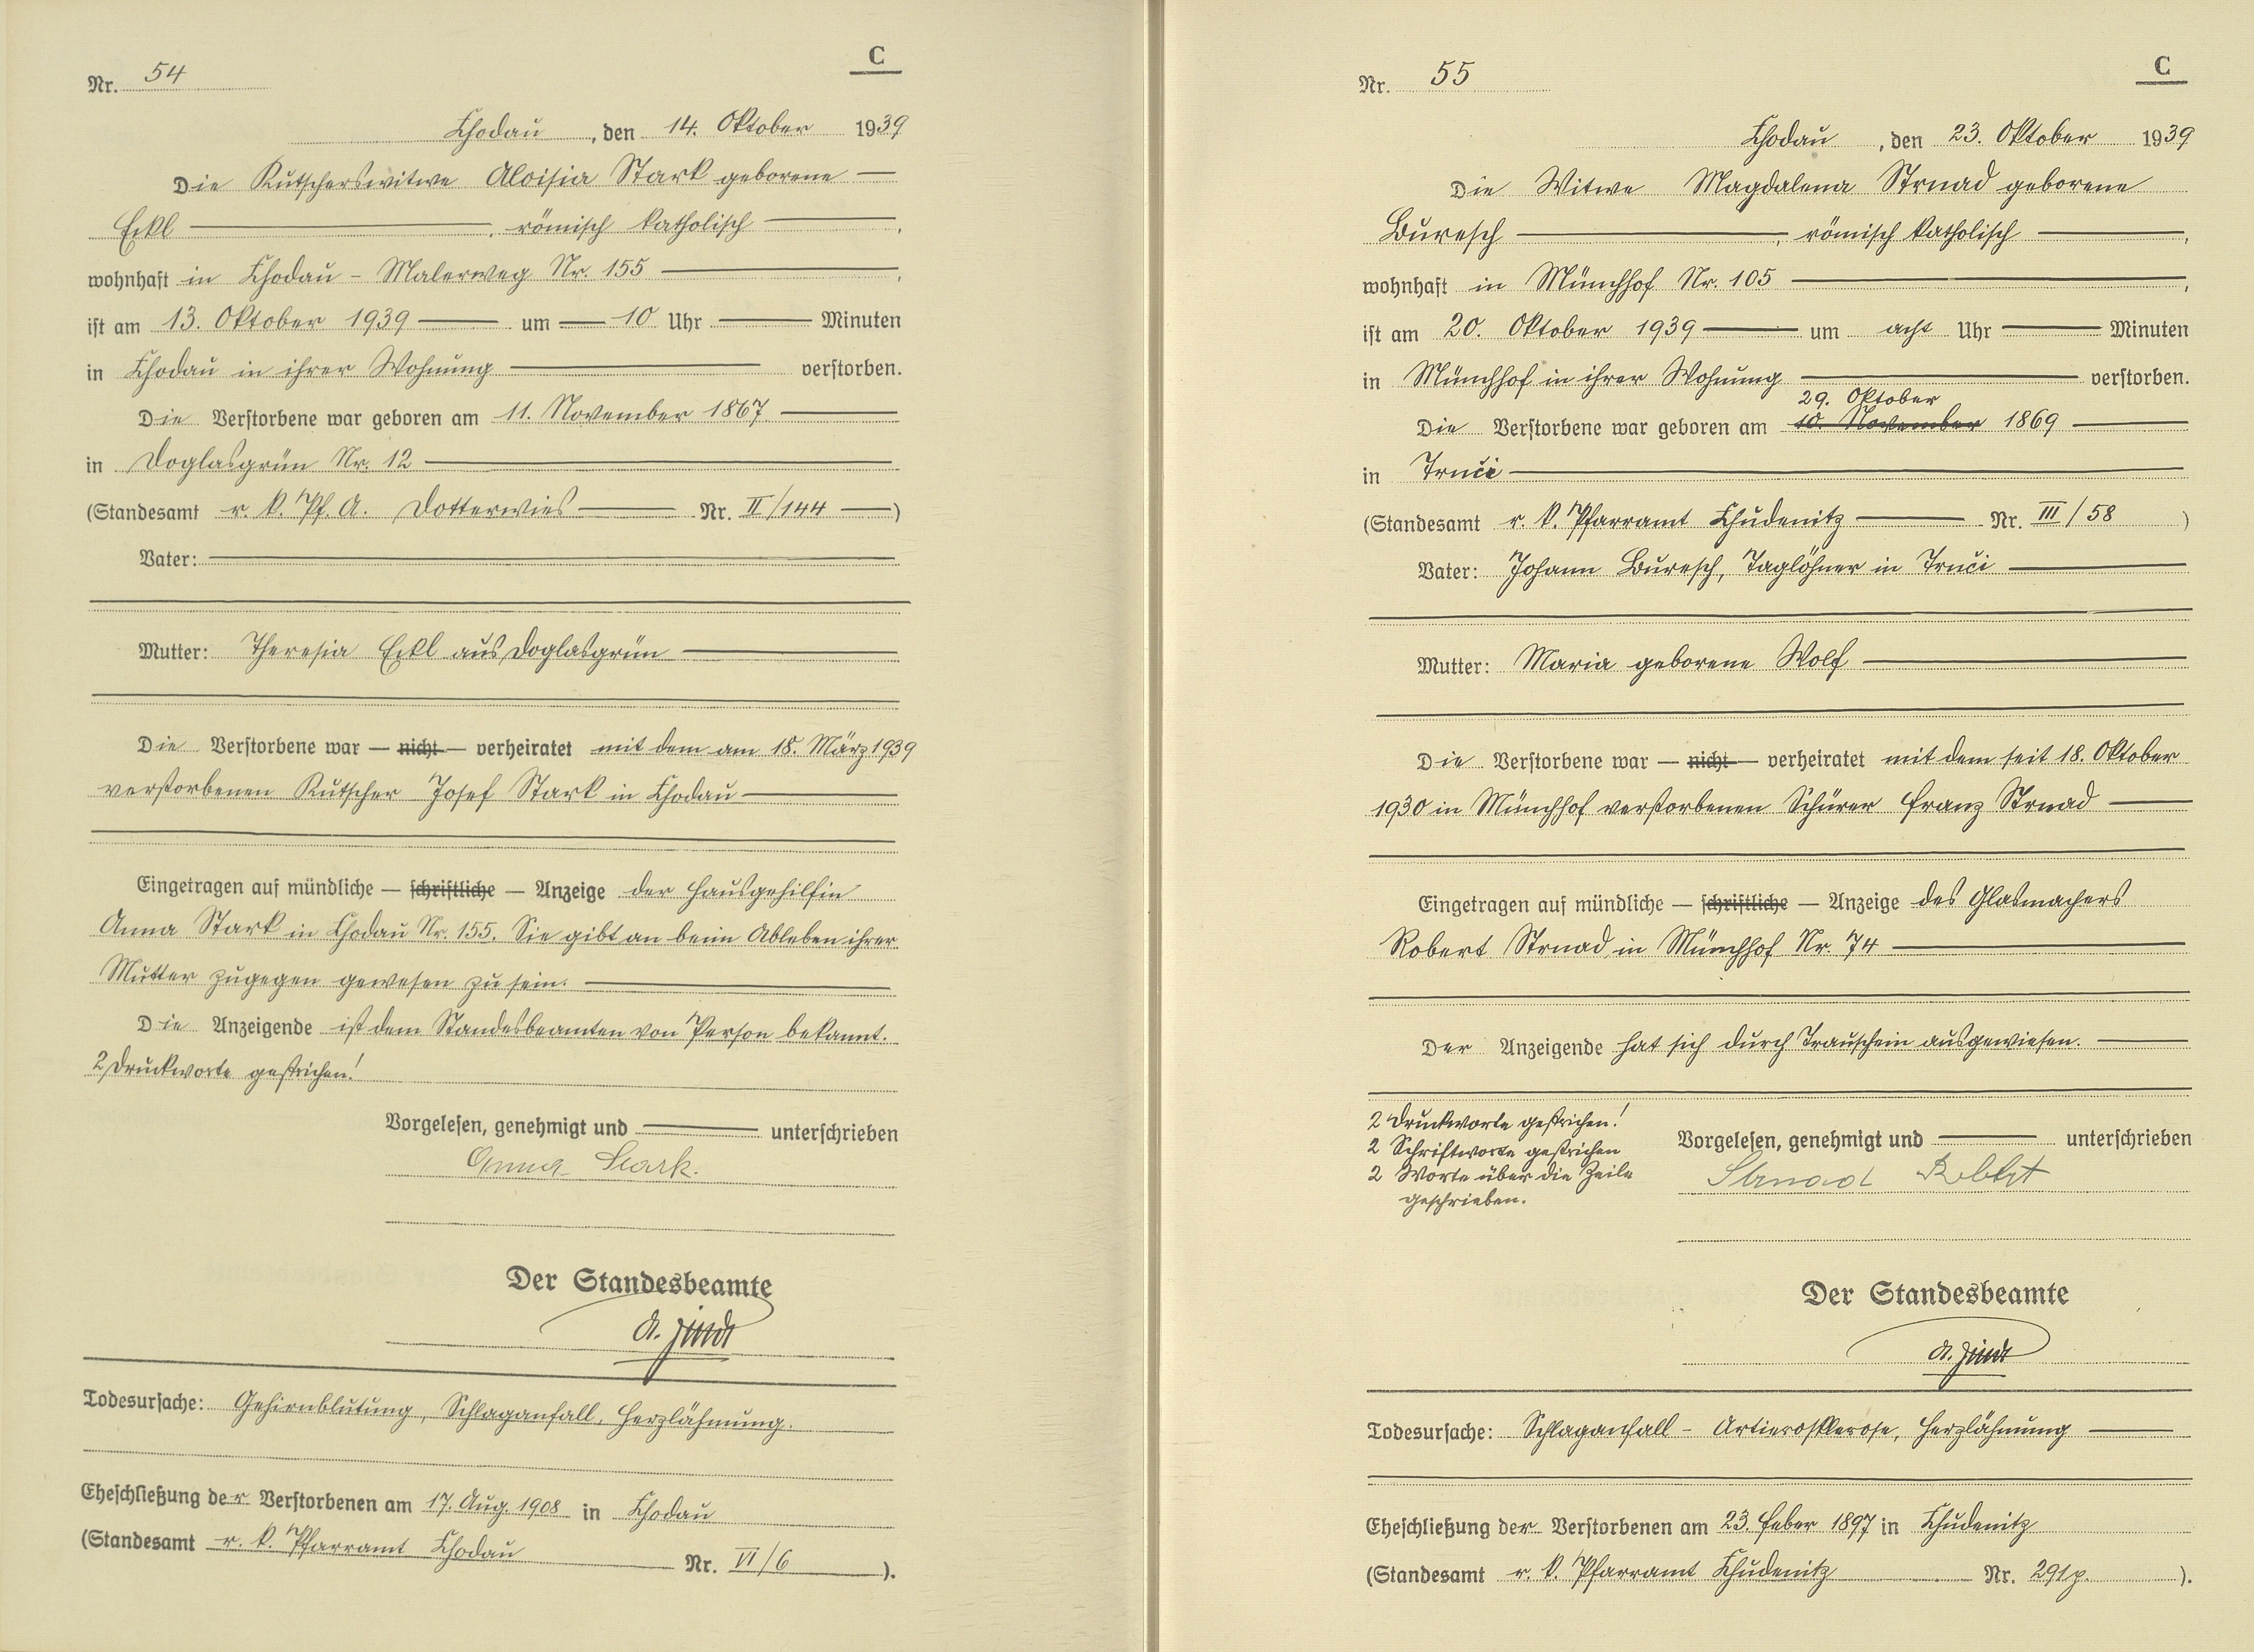 C
Nr. 54
Chodau, den 14. Oktober 1939
Die Kutscherswitwe Aloisia Stark geborene —
Eckl —, römisch katholisch —,
wohnhaft in Chodau - Malerweg Nr. 155 —,
ist am 13. Oktober 1939 — um — 10 Uhr — Minuten
in Chodau in ihrer Wohnung — verstorben.
Die Verstorbene war geboren am 11. November 1867 —
in Doglasgrün Nr. 12 —
(Standesamt r. k. Pf. A. Dotterwies — Nr. II/144 —)
Vater: —
Mutter: Theresia Eckl aus Doglasgrün —
Die Verstorbene war — nicht — verheiratet mit dem am 18. März 1939
verstorbenen Kutscher Josef Stark in Chodau —
Eingetragen auf mündliche — schriftliche — Anzeige der Hausgehilfin
Anna Stark in Chodau Nr. 155. Sie gibt an beim Ableben ihrer
Mutter zugegen gewesen zu sein. —
Die Anzeigende ist dem Standesbeamten von Person bekannt.
2 Druckworte gestrichen!
Vorgelesen, genehmigt und — unterschrieben
Anna Stark.
Der Standesbeamte
Todesursache: Gehirnblutung, Schlaganfall, Herzlähmung.
Eheschließung der Verstorbenen am 17. Aug. 1908 in Chodau
(Standesamt r. k. Pfarramt Chodau Nr. VI/6 ).
C
Nr. 55
Chodau, den 23. Oktober 1939
Die Witwe Magdalena Strnad geborene
Buresch —, römisch katholisch —,
wohnhaft in Münchhof Nr. 105 —,
ist am 20. Oktober 1939 — um acht Uhr — Minuten
in Münchhof in ihrer Wohnung — verstorben.
29. Oktober
Die Verstorbene war geboren am 10. November 1869 —
in Truči —
(Standesamt r. k. Pfarramt Chudenitz — Nr. III/58 )
Vater: Johann Buresch, Taglöhner in Truči —
Mutter: Maria geborene Wolf —
Die Verstorbene war — nicht — verheiratet mit dem seit 18. Oktober
1930 in Münchhof verstorbenen Schürer Franz Strnad —
Eingetragen auf mündliche — schriftliche — Anzeige des Glasmachers
Robert Strnad in Münchhof Nr. 74 —
Der Anzeigende hat sich durch Trauschein ausgewiesen. —
2 Druckworte gestrichen!
2 Schriftworte gestrichen
2 Worte über die Zeile
geschrieben.
Vorgelesen, genehmigt und — unterschrieben
Strnad Robert
Der Standesbeamte
Todesursache: Schlaganfall - Artierosklerose, Herzlähmung —
Eheschließung der Verstorbenen am 23. Feber 1897 in Chudenitz
(Standesamt r. k. Pfarramt Chudenitz Nr. 291p. ).